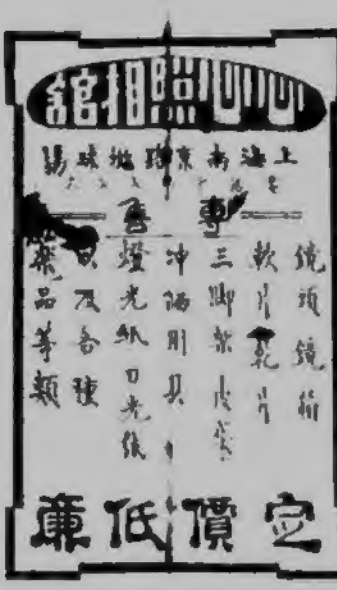 心心照相館
上海南京路拋球場
專售
鏡頭鏡箱
軟片乾片
三脚架皮袋
冲晒用具
燈光紙日光紙
以及各種
藥品等類
定價低廉